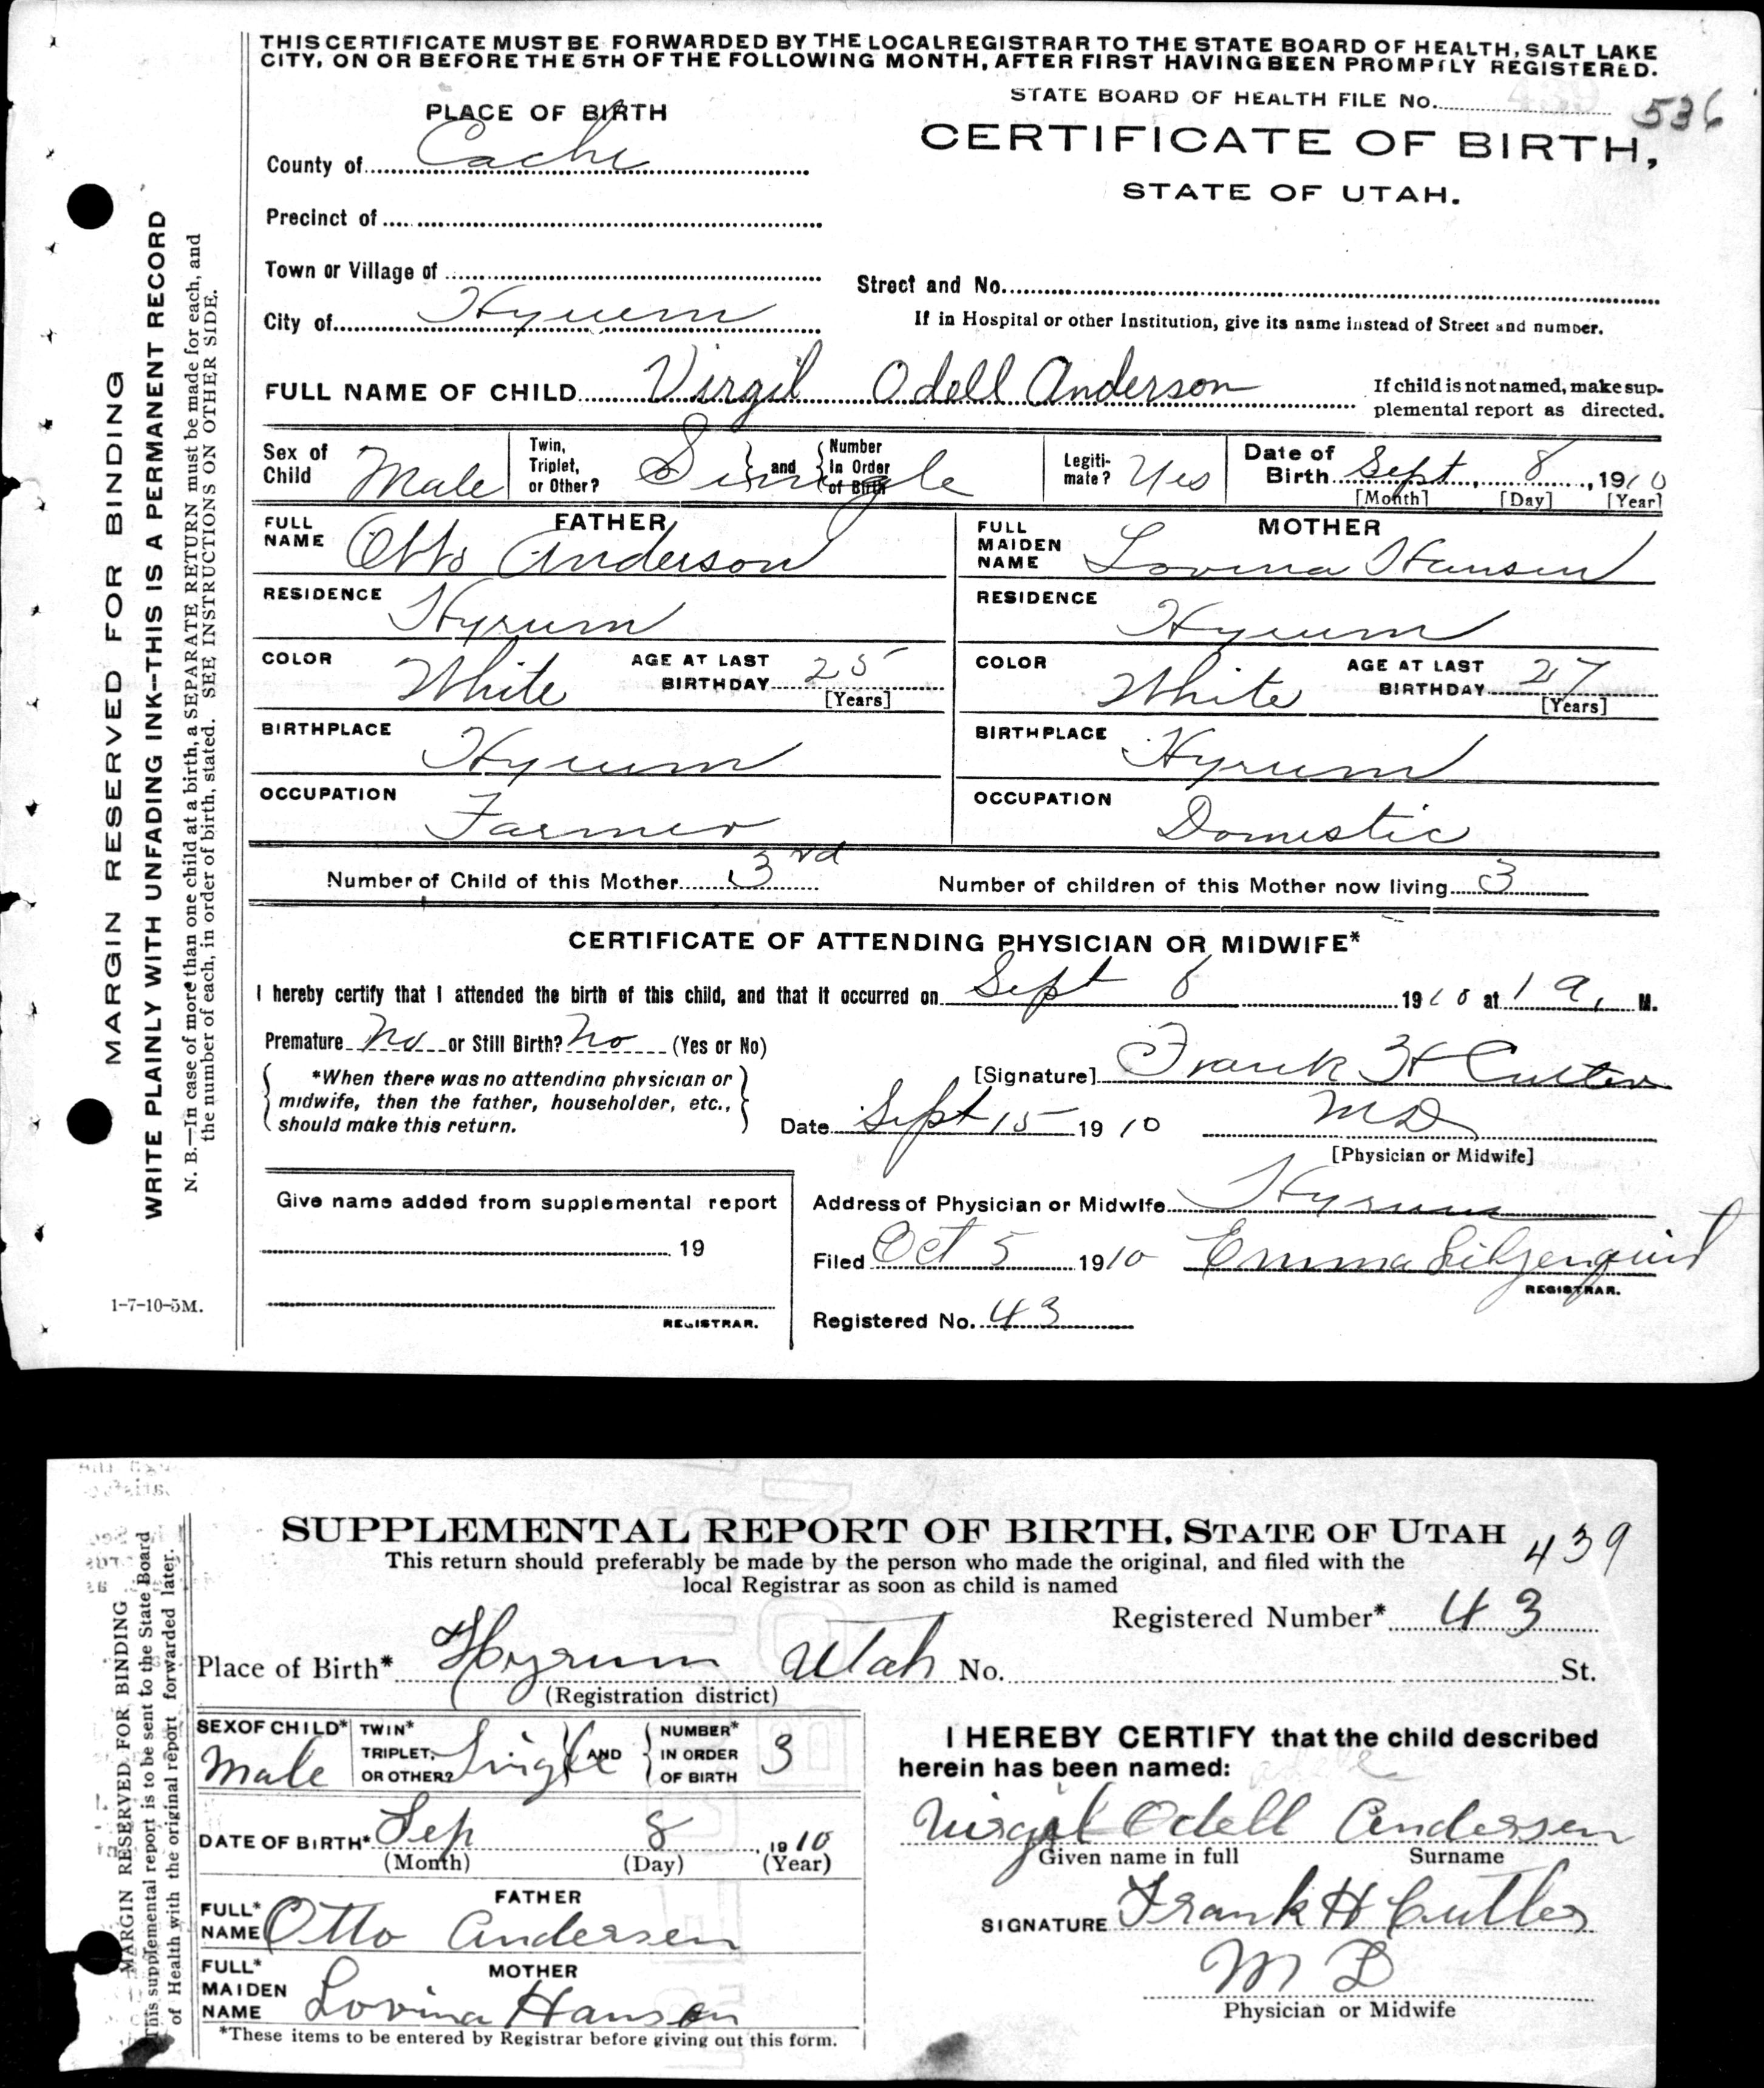 THIS CERTIFICATE MUST BE FORWARDED BY THE LOCAL REGISTRAR TO THE STATE BOARD OF HEALTH, SALT LAKE
CITY, ON OR BEFORE THE 5TH OF THE FOLLOWING MONTH, AFTER FIRST HAVING BEEN PROMPTLY REGISTERED.
STATE BOARD OF HEALTH FILE NO. 439 536
PLACE OF BIRTH
CERTIFICATE OF BIRTH,
STATE OF UTAH.
County of Cache
Precinct of
Town or Village of
Street and No.
City of Hyrum
If in Hospital or other Institution, give its name instead of Street and number.
FULL NAME OF CHILD Virgil Odell Anderson
If child is not named, make sup-
plemental report as directed.
Sex of Child Male
Twin, Triplet, or Other? Single and Number In Order of Birth
Legiti-mate? Yes
Date of Birth Sept. 8, 1910
[Month] [Day] [Year]
FATHER
FULL NAME Otto Anderson
RESIDENCE Hyrum
COLOR White AGE AT LAST BIRTHDAY 25
[Years]
BIRTHPLACE Hyrum
OCCUPATION Farmer
MOTHER
FULL MAIDEN NAME Lovina Hansen
RESIDENCE Hyrum
COLOR White AGE AT LAST BIRTHDAY 27
[Years]
BIRTHPLACE Hyrum
OCCUPATION Domestic
Number of Child of this Mother 3rd Number of children of this Mother now living 3
CERTIFICATE OF ATTENDING PHYSICIAN OR MIDWIFE*
I hereby certify that I attended the birth of this child, and that it occurred on Sept 8 1910 at 1 a. M.
Premature No or Still Birth? No (Yes or No)
*When there was no attending physician or
midwife, then the father, householder, etc.,
should make this return.
[Signature] Frank H Cutler
Date Sept 15 1910 MD
[Physician or Midwife]
Give name added from supplemental report
19
REGISTRAR.
Address of Physician or Midwife Hyrum
Filed Oct 5 1910 Emma Liljenquist
REGISTRAR.
Registered No. 43
MARGIN RESERVED FOR BINDING
WRITE PLAINLY WITH UNFADING INK--THIS IS A PERMANENT RECORD
N. B.—In case of more than one child at a birth, a SEPARATE RETURN must be made for each, and
the number of each, in order of birth, stated. SEE INSTRUCTIONS ON OTHER SIDE.
1-7-10-5M.
SUPPLEMENTAL REPORT OF BIRTH, STATE OF UTAH 439
This return should preferably be made by the person who made the original, and filed with the
local Registrar as soon as child is named
Registered Number* 43
Place of Birth* Hyrum Utah No. St.
(Registration district)
SEX OF CHILD* Male
TWIN* TRIPLET, OR OTHER? Single AND NUMBER* IN ORDER OF BIRTH 3
DATE OF BIRTH* Sep 8, 1910
(Month) (Day) (Year)
FATHER
FULL* NAME Otto Andersen
MOTHER
FULL* MAIDEN NAME Lovina Hansen
*These items to be entered by Registrar before giving out this form.
I HEREBY CERTIFY that the child described
herein has been named:
Virgil Odell Andersen
Given name in full Surname
SIGNATURE Frank H Cutler
M D
Physician or Midwife
MARGIN RESERVED FOR BINDING
This supplemental report is to be sent to the State Board
of Health with the original report forwarded later.